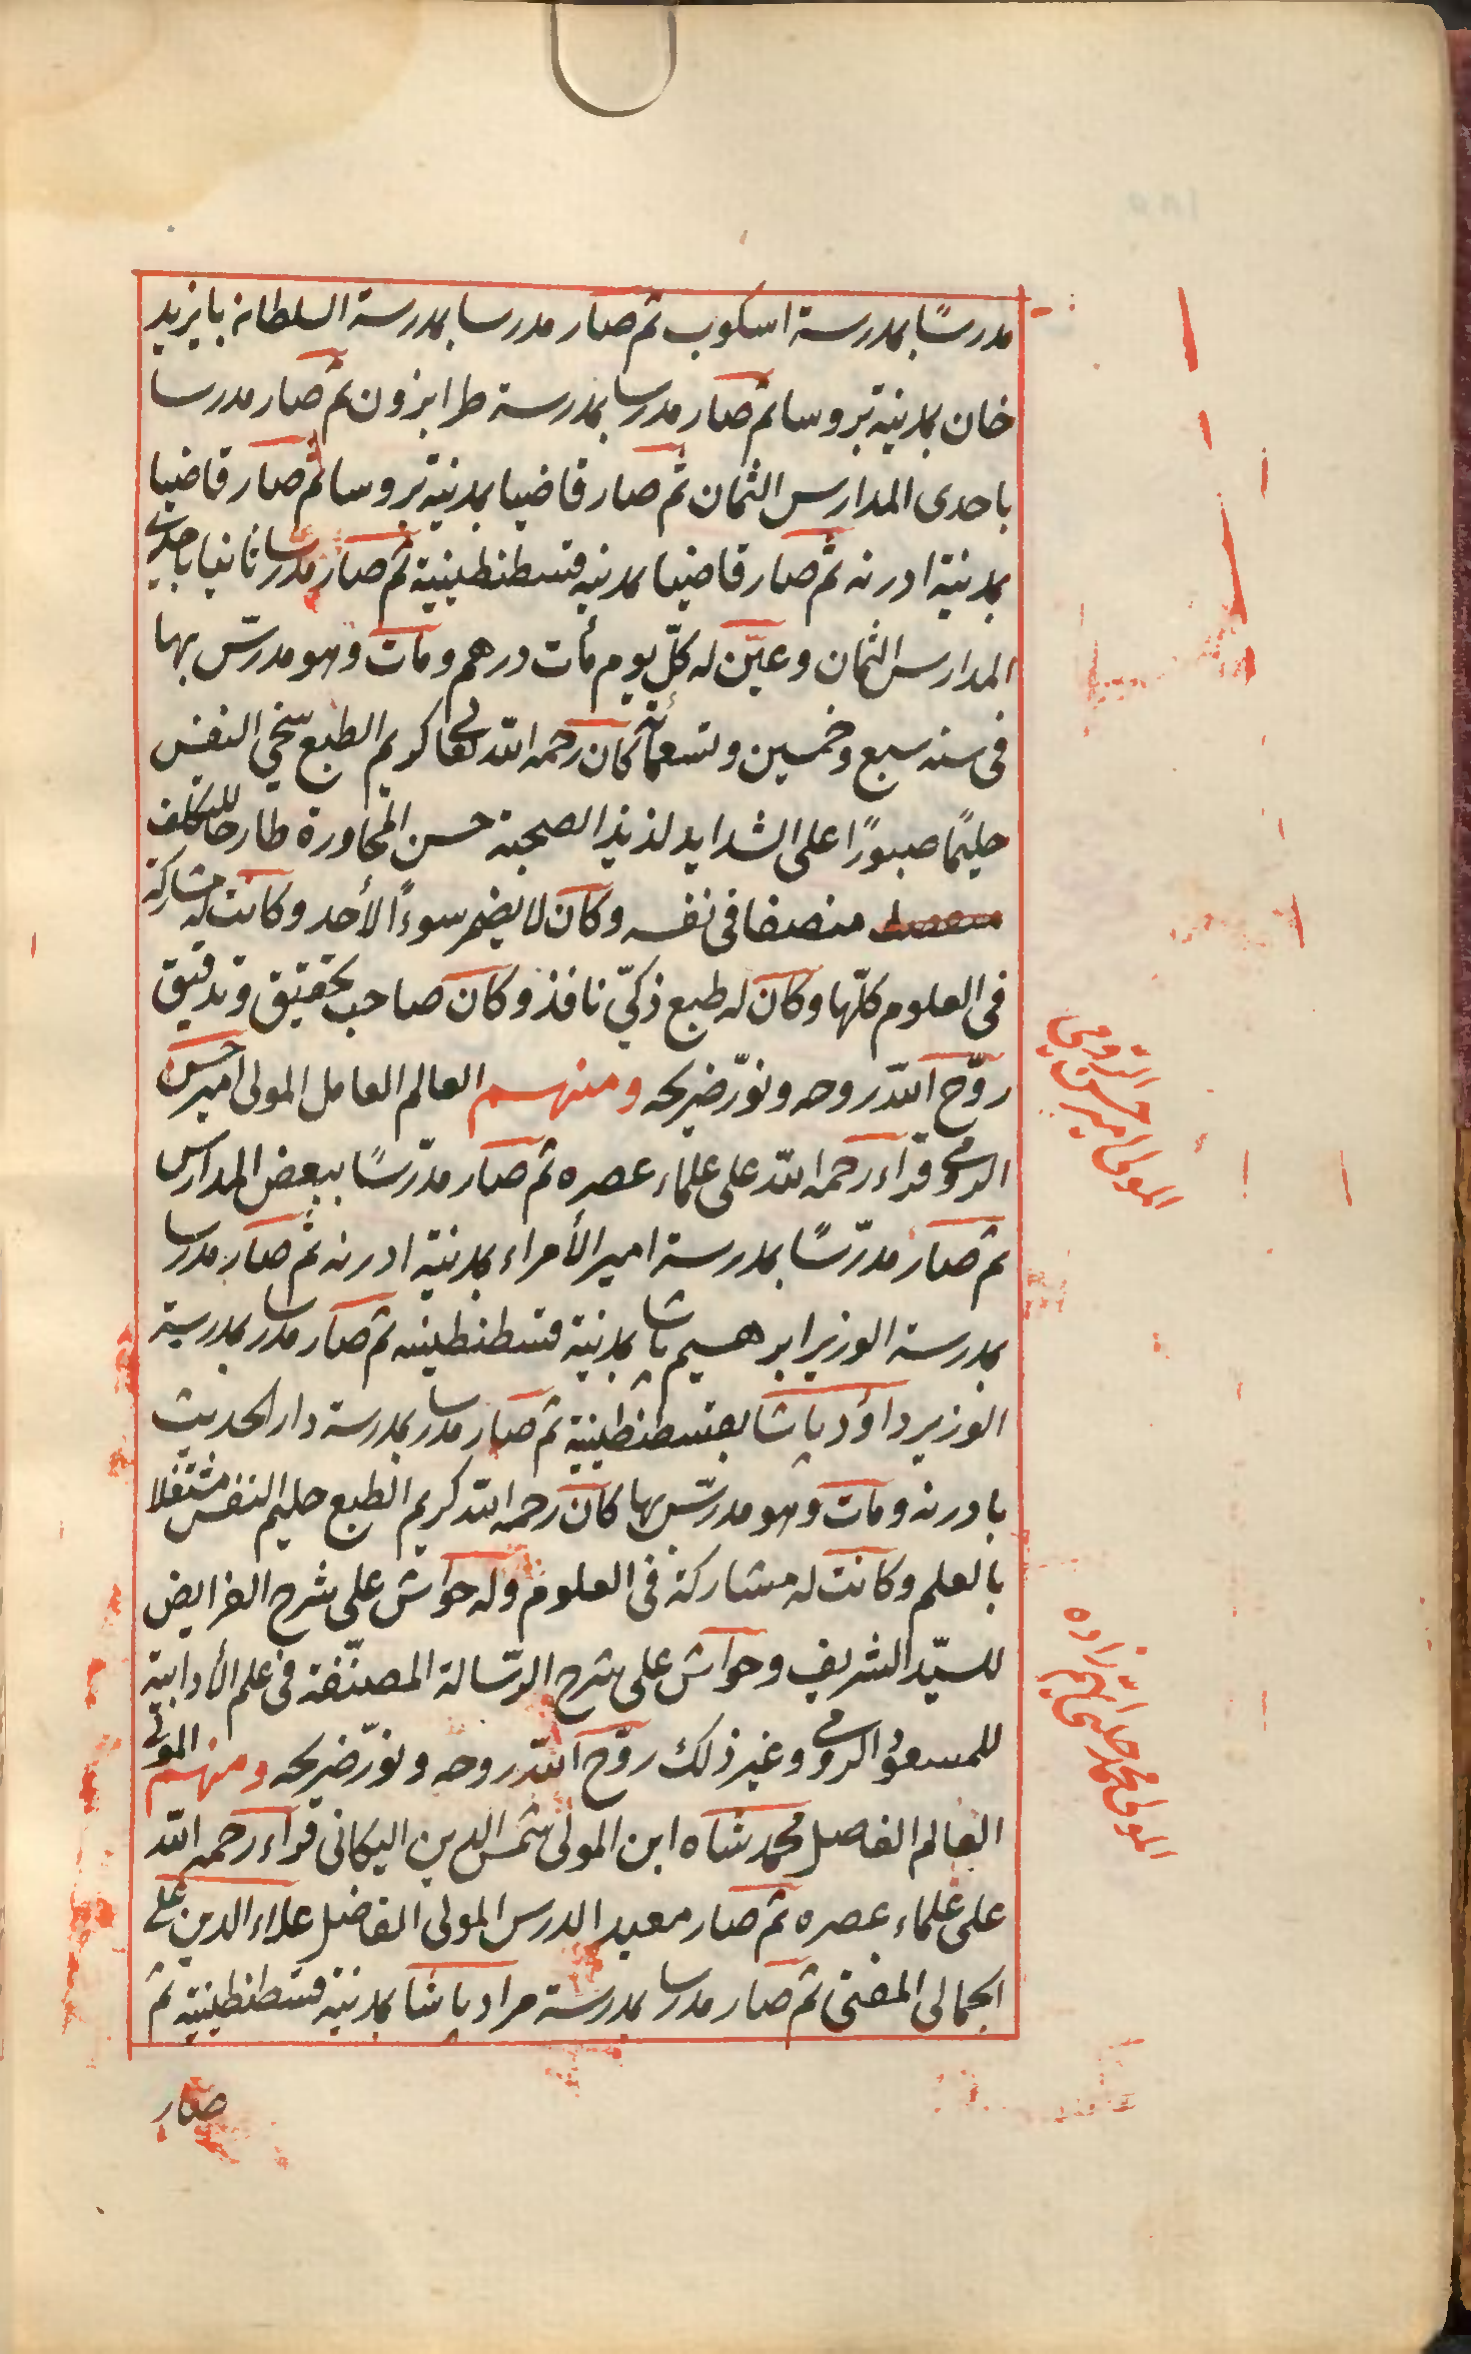 مدرسًا بمدرسة اسكوب ثم صار مدرسا بمدرسة السلطان بايزيد
خان بمدينة بروسا ثم صار مدرسا بمدرسة طرابزون ثم صار مدرسا
باحدى المدارس الثمان ثم صار قاضيا بمدينة بروسا ثم صار قاضيا
بمدينة ادرنه ثم صار قاضيا بمدينه قسطنطينية ثم صار مدرسا ثانيا باحدى
المدارس الثمان وعيّن له كلّ يوم مأت درهم ومات وهو مدرسّ بها
فى سنه سبع وخمسين وتسعمائة كان رحمه الله تعالى كريم الطبع سخي النفس
حليمًا صبورًا على الشدايد لذيذ الصحبة حسن المحاورة طارحا للتكلف
منصفا فى نفسه وكان لا يضمر سوءًا لأحد وكانت له مشاركة
فى العلوم كلّها وكان له طبع ذكيّ نافذ وكان صاحب تحقيق وتدقيق
روّح الله روحه ونوّر ضريحه ومنهم العالم العامل المولى امير حسن
الرومى قراء رحمه الله على علماء عصره ثم صار مدرّسًا ببعض المدارس
ثم صار مدرّسًا بمدرسة امير الأمراء بمدينة ادرنه ثم صار مدرسا
بمدرسة الوزير ابرهيم پاشا بمدينة قسطنطينيه ثم صار مدرسا بمدرسة
الوزير داؤد پاشا بقسطنطينية ثم صار مدرسا بمدرسة دار الحديث
بادرنه ومات وهو مدرسّ بها كان رحمه الله كريم الطبع حليم النفس مشتغلا
بالعلم وكانت له مشاركة فى العلوم وله حواش على شرح الفرايض
للسيّد الشريف وحواش على شرح الرّسالة المصنّفة فى علم الأدابية
للمسعود الرومى وغير ذلك روّح الله روحه ونوّر ضريحه ومنهم المولى
العالم الفاضل محمد شاه ابن المولى شمس الدين اليكانى قراء رحمه الله
على علماء عصره ثم صار معيد الدرس المولى الفاضل علاء الدين على
الجمالى المفتى ثم صار مدرسا بمدرسة مراد پاشا بمدينة قسطنطينية ثم
صار
المولى امير حسن الرّومي
المولى محمد چلبى
زاده